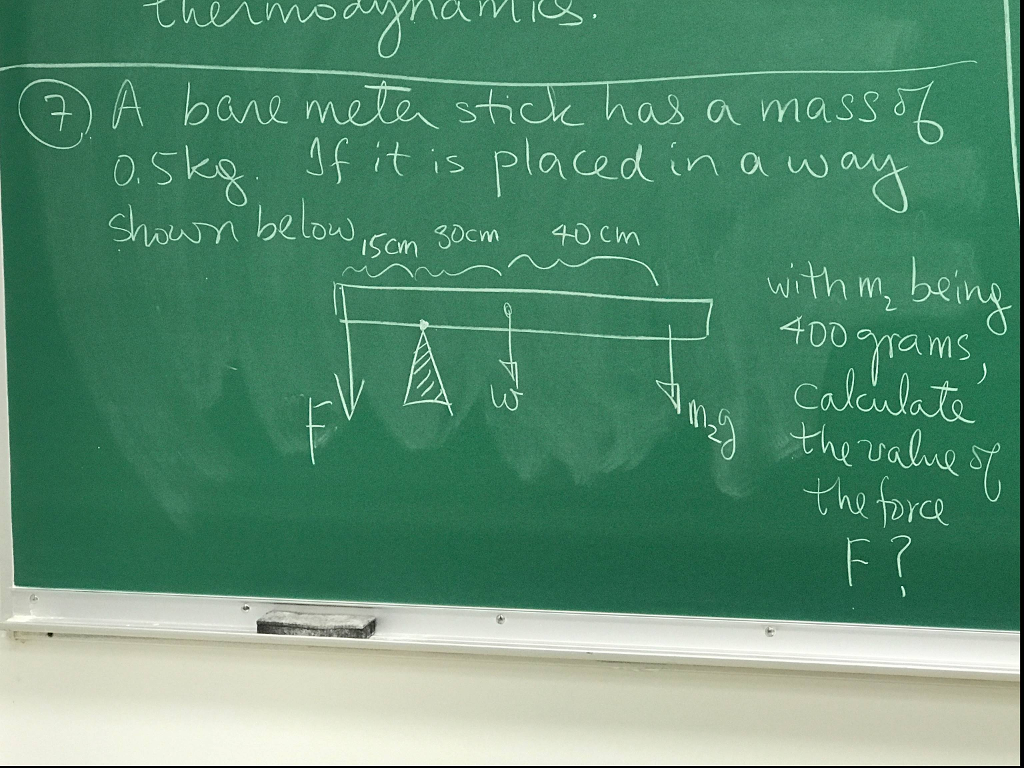 thermodynamics.
7 A bare meter stick has a mass of
0.5kg. If it is placed in a way
shown below
15cm 30cm 40cm
F W m₂g
with m₂ being
400 grams,
calculate
the value of
the force
F?